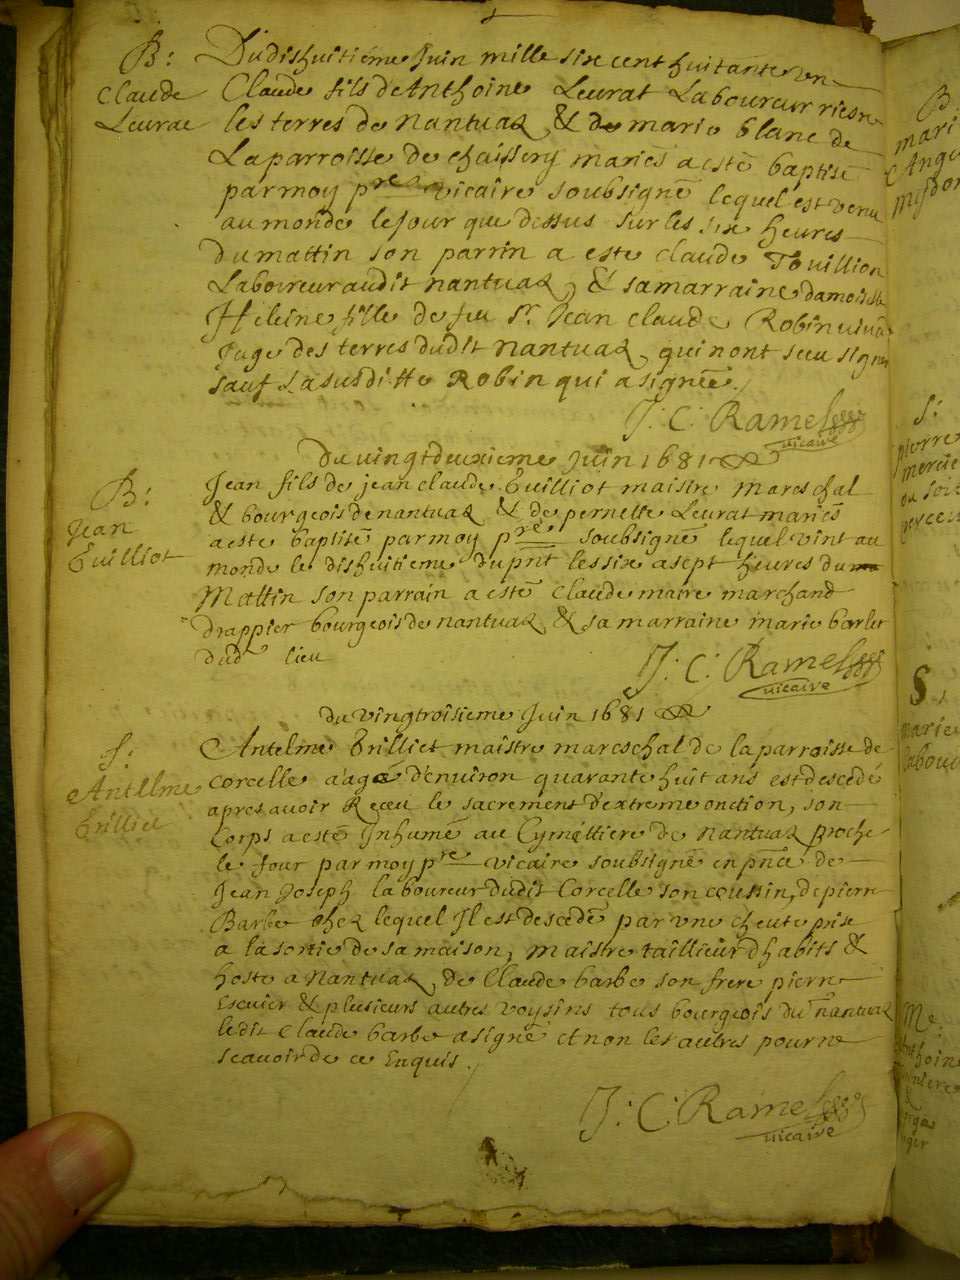 B:
Claude
Leurat
Du dishuitiéme Juin mille six cent huitante un
Claude fils de Anthoine Leurat Laboureur riesre
les terres de nantuaz & de marie blanc de
La parroisse de chaissery mariés a esté baptisé
par moy pre vicaire soubsigné lequel est venu
au monde le jour que dessus sur les six heures
du mattin son parrin a este claude Touillion
Laboureur audit nantuaz, & sa marraine damoiselle
Heleine fille de feu Sr. Jean claude Robin vivant
Juge des terres dudit nantuaz, qui nont sceu signer
sauf La susditte Robin qui a signée.
J: C: Ramel
vicaire
Du vingtdeuxieme Juin 1681
B:
Jean
Tuilliot
Jean fils de jean claude Tuilliot maistre mareschal
& bourgeois de nantuaz & de pernette Leurat mariés
a este baptisé par moy pre soubsigné lequel vint au
monde le dishuitieme du pnt les six a sept heures du
Mattin son parrain a esté Claude maire marchand
drappier bourgeois de nantuaz & sa marraine marie barlet
dud lieu
J: C: Ramel
vicaire
du vingtroisieme Juin 1681
S:
Antelme
Trilliet
Antelme Trilliet maistre mareschal de la parroisse de
corcelle aagé d'environ quarante huit ans est descedé
apres avoir Receu le sacrement dextreme onction, son
Corps a esté Inhumé au Cymettiere de nantuaz proche
le Jour par moy pre vicaire soubsigné en pnce de
Jean Joseph laboureur dudit Corcelle son cousin, de pierre
Barbe chez lequel Il est descedé par une cheute prise
a la sortie de sa maison, maistre taillieur dhabits &
hoste a nantuaz, de Claude barbe son frere pierre
Escuier & plusieurs autres voysins tous bourgeois du nantuaz
ledit Claude barbe a signé et non les autres pour ne
scavoir de ce Enquis.
J: C: Ramel
vicaire
B
mari
S:
pierre
mercie
ou soit
S:
marie
Labou
Me: